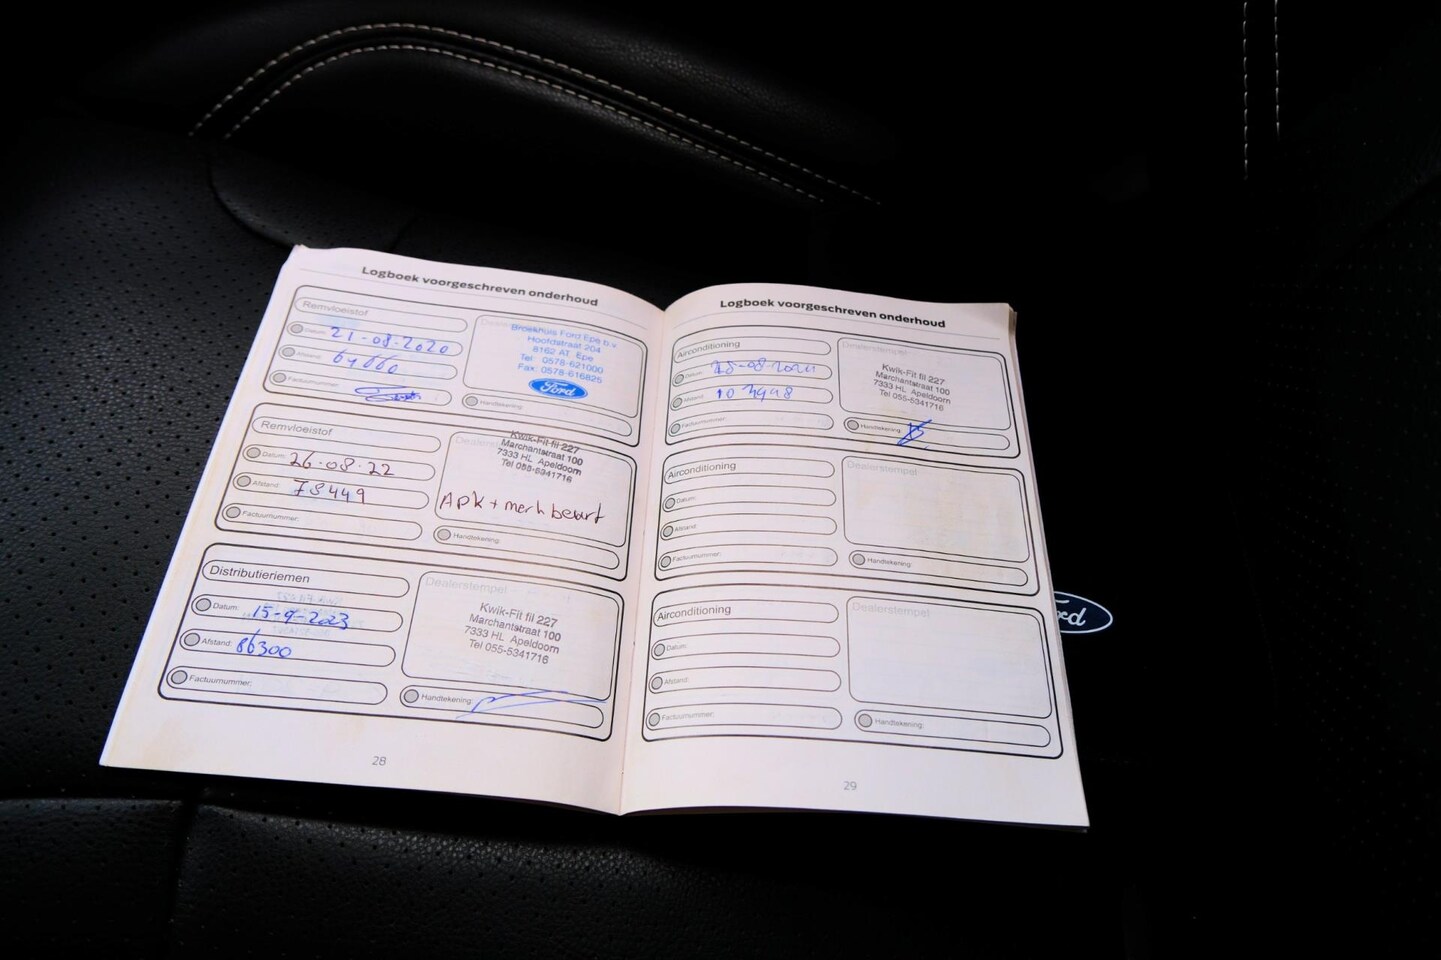 Logboek voorgeschreven onderhoud
Remvloeistof
Datum: 21-08-2020
Afstand:
Factuurnummer:
Broekhuis Ford Epe b.v.
Hoofdstraat 204
8162 AT Epe
Tel: 0578-621000
Fax: 0578-616825
Ford
Handtekening:
Remvloeistof
Datum: 26-08-22
Afstand: 78449
Factuurnummer:
Dealerstempel
Kwik-Fit fil 227
Marchantstraat 100
7333 HL Apeldoorn
Tel 055-5341716
APK + merk beurt
Handtekening:
Distributieriemen
Datum: 15-9-2023
Afstand: 86300
Factuurnummer:
Dealerstempel
Kwik-Fit fil 227
Marchantstraat 100
7333 HL Apeldoorn
Tel 055-5341716
Handtekening:
28
Logboek voorgeschreven onderhoud
Airconditioning
Datum:
Afstand:
Factuurnummer:
Dealerstempel
Kwik-Fit fil 227
Marchantstraat 100
7333 HL Apeldoorn
Tel 055-5341716
Handtekening:
Airconditioning
Datum:
Afstand:
Factuurnummer:
Dealerstempel
Handtekening:
Airconditioning
Datum:
Afstand:
Factuurnummer:
Dealerstempel
Handtekening:
29